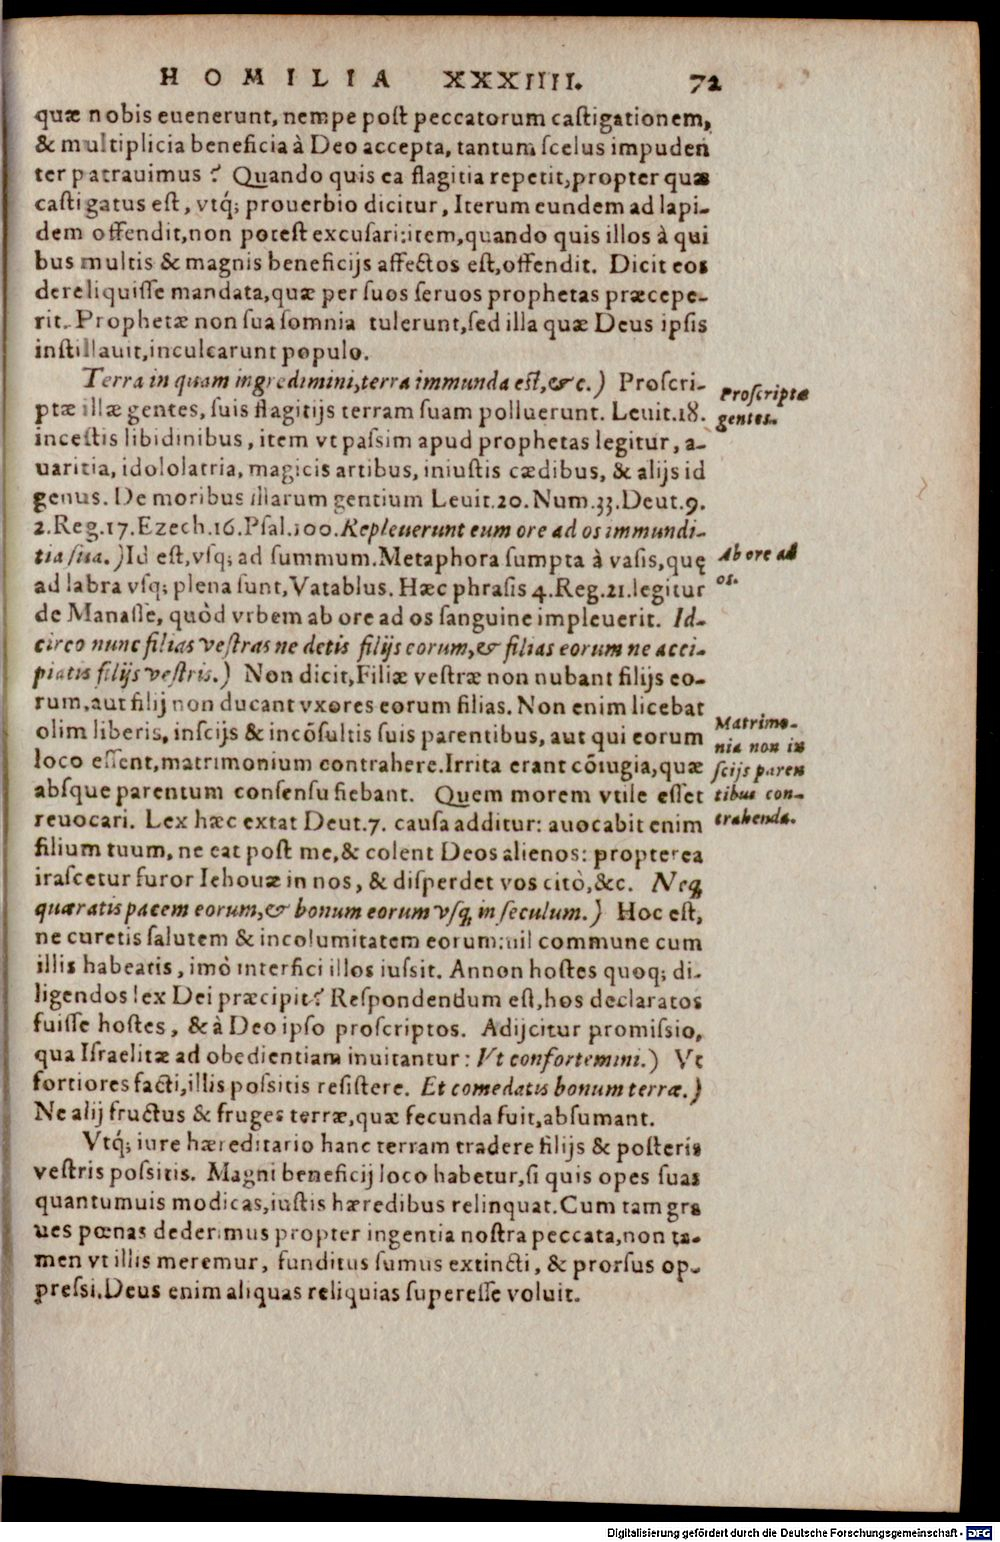 HOMILIA XXXIIII. 72
quæ nobis euenerunt, nempe post peccatorum castigationem,
& multiplicia beneficia à Deo accepta, tantum scelus impuden
ter patrauimus? Quando quis ea flagitia repetit, propter quæ
castigatus est, vtq́; prouerbio dicitur, Iterum eundem ad lapi-
dem offendit, non potest excusari: item, quando quis illos à qui
bus multis & magnis beneficijs affectos est, offendit. Dicit eos
dereliquisse mandata, quæ per suos seruos prophetas præcepe-
rit. Prophetæ non sua somnia tulerunt, sed illa quæ Deus ipsis
instillauit, inculcarunt populo.
Terra in quam ingredimini, terra immunda est, &c.) Proscri-
ptæ illæ gentes, suis flagitijs terram suam polluerunt. Leuit.18.
incestis libidinibus, item vt passim apud prophetas legitur, a-
uaritia, idololatria, magicis artibus, iniustis cædibus, & alijs id
genus. De moribus illarum gentium Leuit.20. Num.33. Deut.9.
2.Reg.17. Ezech.16. Psal.100. Repleuerunt eum ore ad os immundi-
tia sua.) Id est, vsq; ad summum. Metaphora sumpta à vasis, quę
ad labra vsq; plena sunt, Vatablus. Hæc phrasis 4.Reg.21. legitur
de Manasse, quòd vrbem ab ore ad os sanguine impleuerit. Id-
circo nunc filias vestras ne detis filijs eorum, & filias eorum ne acci-
piatis filijs vestris.) Non dicit, Filiæ vestræ non nubant filijs eo-
rum, aut filij non ducant vxores eorum filias. Non enim licebat
olim liberis, inscijs & incōsultis suis parentibus, aut qui eorum
loco essent, matrimonium contrahere. Irrita erant cōiugia, quæ
absque parentum consensu fiebant. Quem morem vtile esset
reuocari. Lex hæc extat Deut.7. causa additur: auocabit enim
filium tuum, ne eat post me, & colent Deos alienos: propterea
irascetur furor Iehouæ in nos, & disperdet vos citò, &c. Neq;
quæratis pacem eorum, & bonum eorum vsq; in seculum.) Hoc est,
ne curetis salutem & incolumitatem eorum: nil commune cum
illis habeatis, imò interfici illos iussit. Annon hostes quoq; di-
ligendos lex Dei præcipit? Respondendum est, hos declaratos
fuisse hostes, & à Deo ipso proscriptos. Adijcitur promissio,
qua Israelitæ ad obedientiam inuitantur: Vt confortemini.) Vt
fortiores facti, illis possitis resistere. Et comedatis bonum terræ.)
Ne alij fructus & fruges terræ, quæ fecunda fuit, absumant.
Vtq́; iure hæreditario hanc terram tradere filijs & posteris
vestris possitis. Magni beneficij loco habetur, si quis opes suas
quantumuis modicas, iustis hæredibus relinquat. Cum tam gra
ues pœnas dederimus propter ingentia nostra peccata, non ta-
men vt illis meremur, funditus sumus extincti, & prorsus op-
pressi. Deus enim aliquas reliquias superesse voluit.
Proscriptæ
gentes.
Ab ore ad
os.
Matrimo-
nia non in
scijs paren
tibus con-
trahenda.
Digitalisierung gefördert durch die Deutsche Forschungsgemeinschaft - DFG